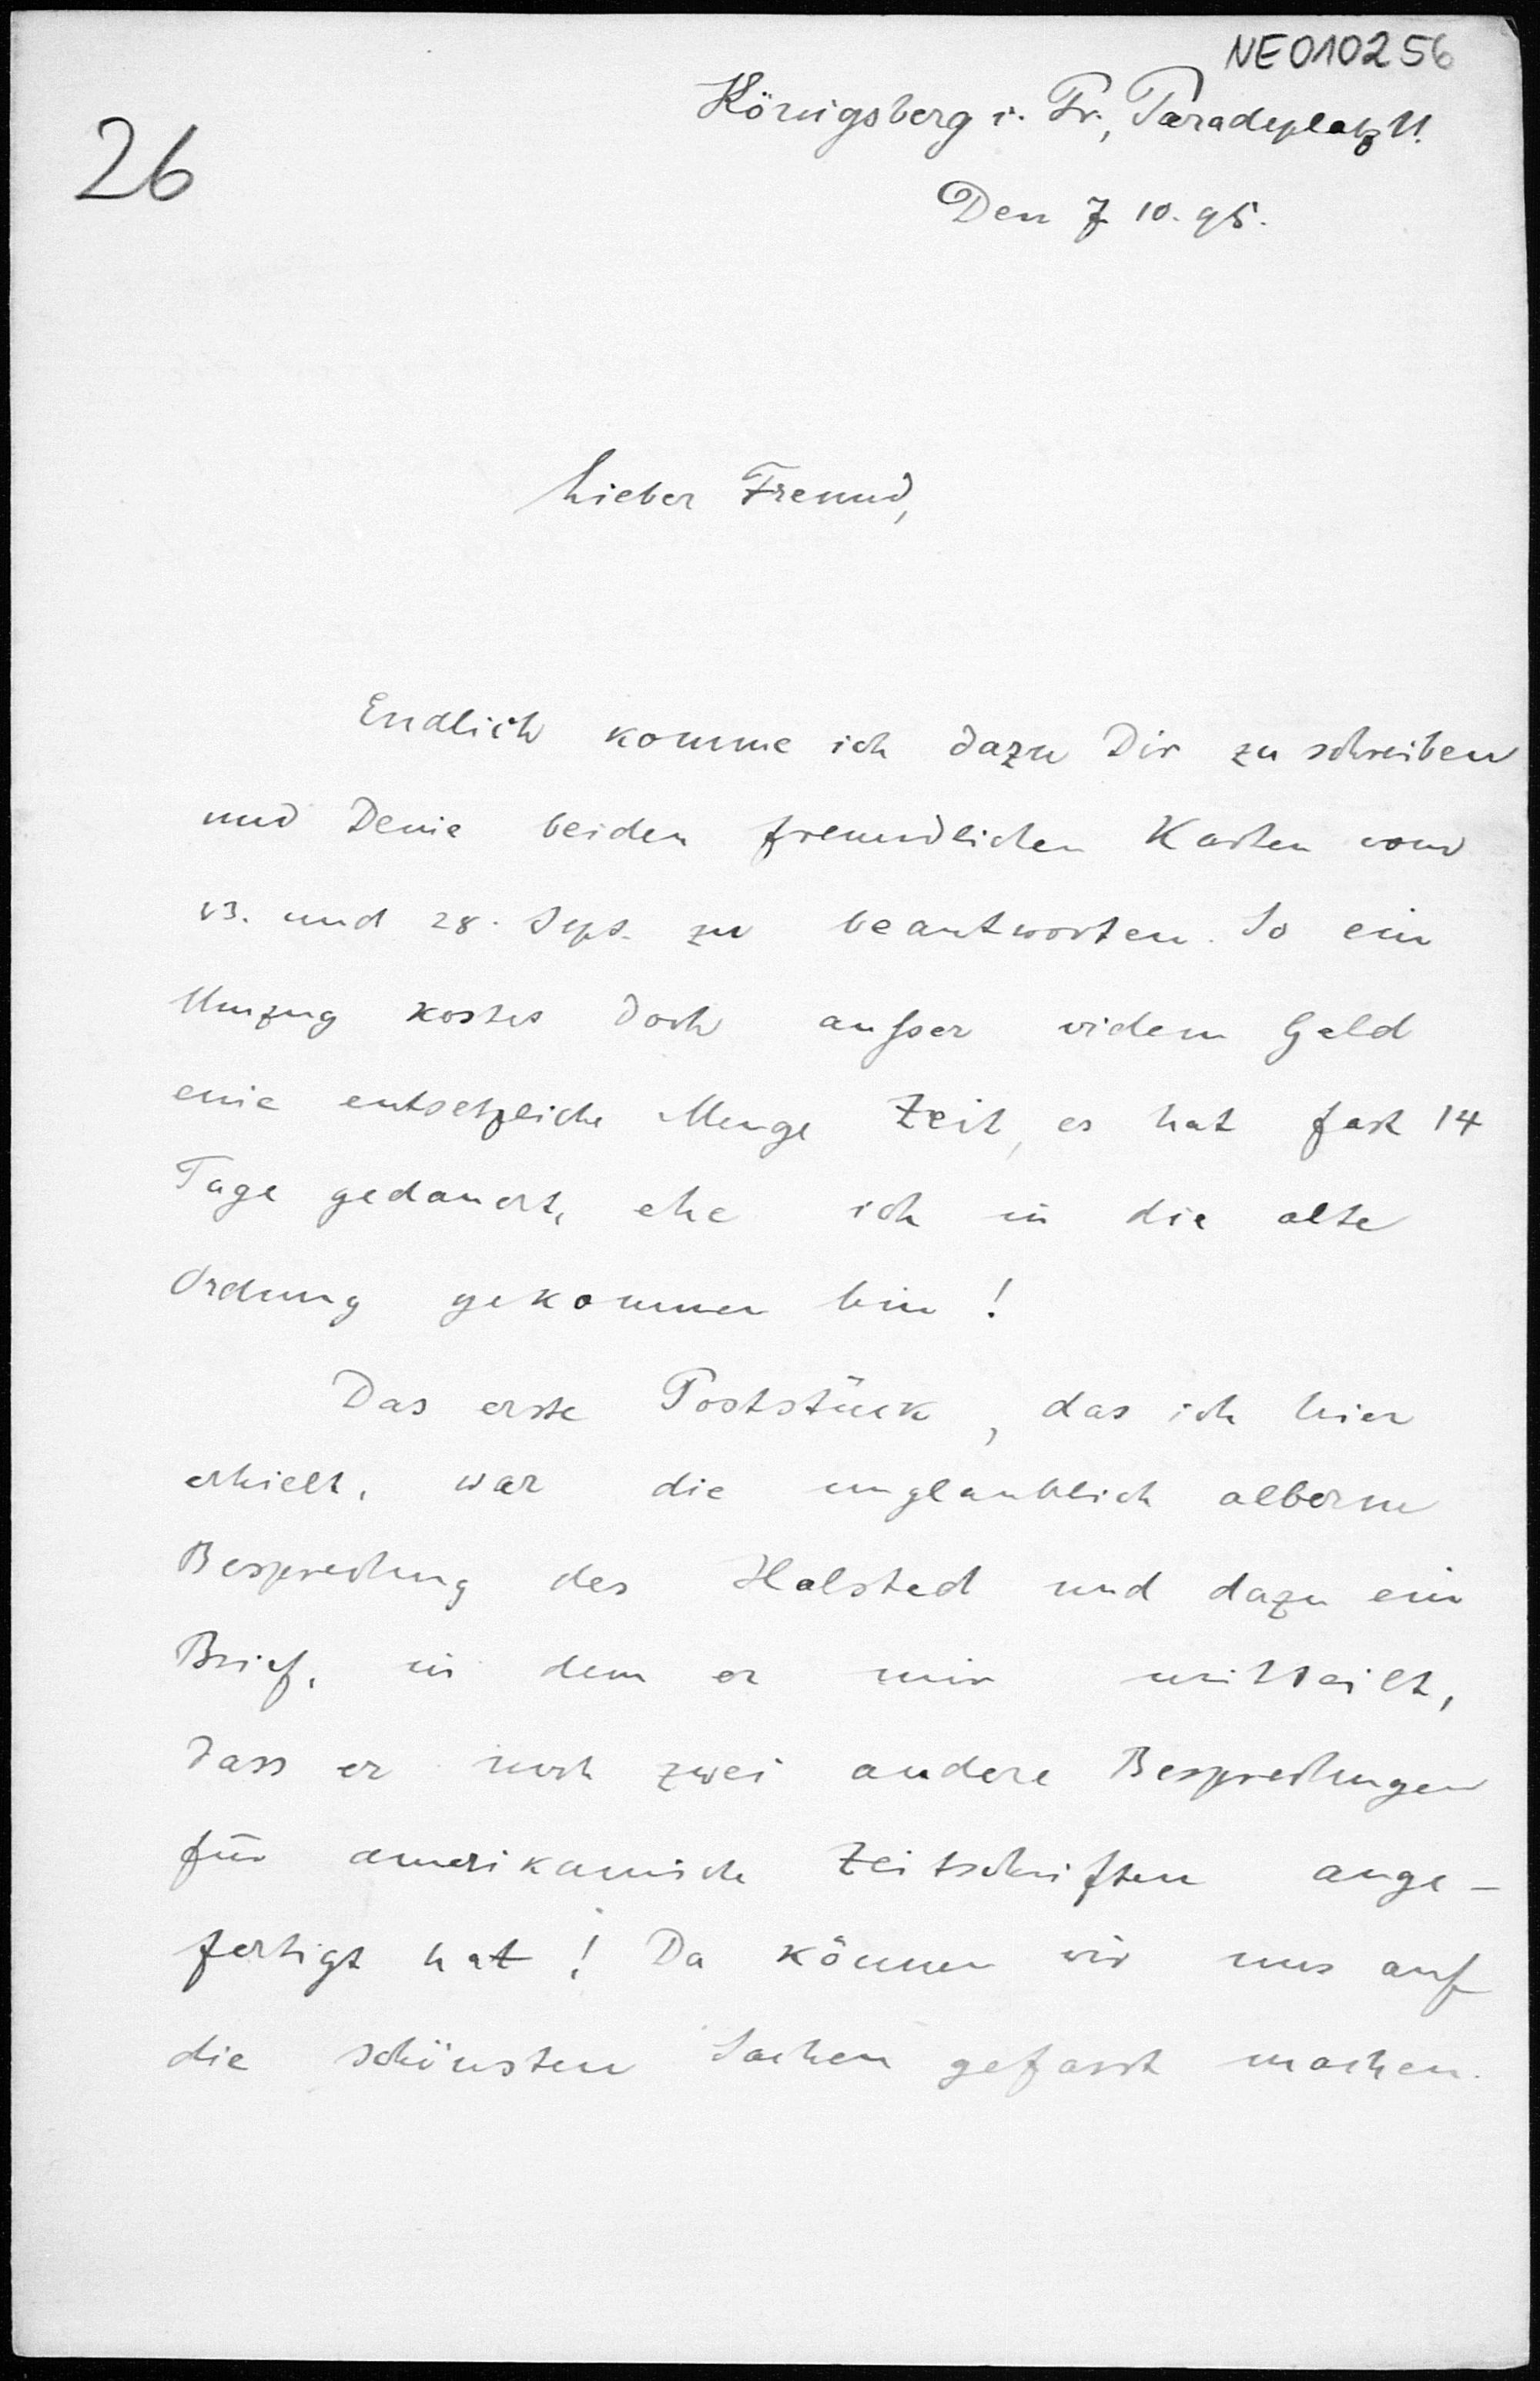 NE010256
26
Königsberg i. Pr., Paradeplatz 11.
Den 7. 10. 95.
Lieber Freund,
Endlich komme ich dazu Dir zu schreiben
und Deine beiden freundlichen Karten vom
13. und 28. Sept. zu beantworten. So ein
Umzug kostet doch außer vielem Geld
eine entsetzliche Menge Zeit, es hat fast 14
Tage gedauert, ehe ich in die alte
Ordnung gekommen bin!
Das erste Poststück, das ich hier
erhielt, war die unglaublich alberne
Besprechung des Halsted und dazu ein
Brief, in dem er mir mitteilt,
dass er noch zwei andere Besprechungen
für amerikanische Zeitschriften ange-
fertigt hat! Da können wir uns auf
die schönsten Sachen gefasst machen.